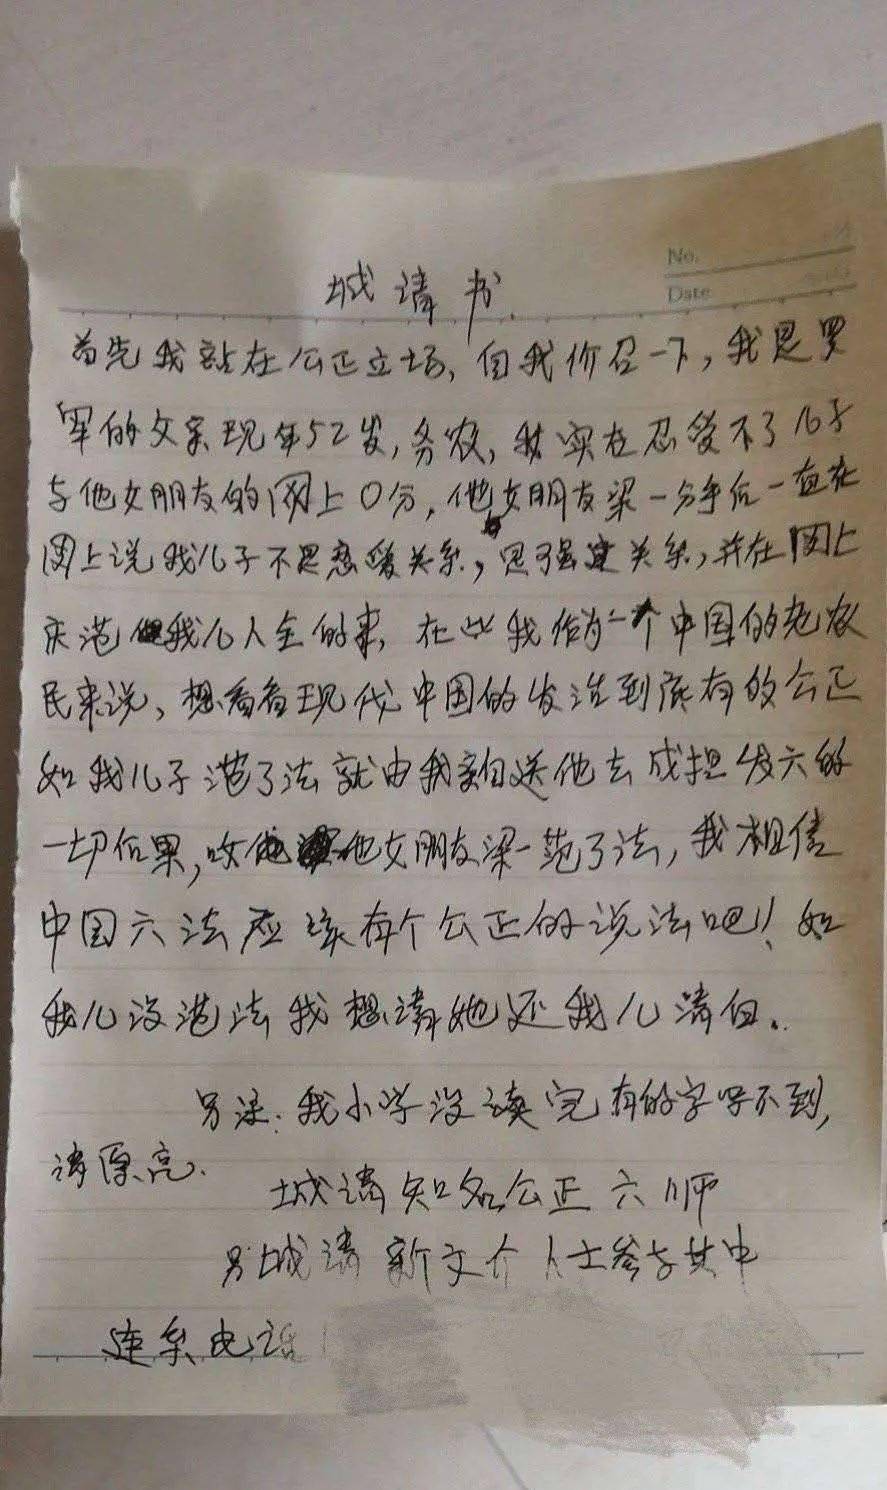 城请书
No.
Date
首先我站在公正立场,自我价召一下,我是罗
军的父亲现年52岁,务农,我实在忍受不了儿子
与他女朋友的网上0分,他女朋友梁一分手后一直在
网上说我儿子不是恋爱关系,是强建关系,并在网上
我儿人全的事,在此我作为一个中国的老农
民来说,想看看现代中国的发法到底有的公正
如我儿子范了法就由我亲自送他去成担发六的
一切后果,他女朋友梁一范了法,我相信
中国六法应该有个公正的说法吧!如
我儿没范法我想请她还我儿清白.
另注:我小学没读完有的字写不到,
请原亮.
城请知名公正六师
另城请新文介人士参与其中
连系电话